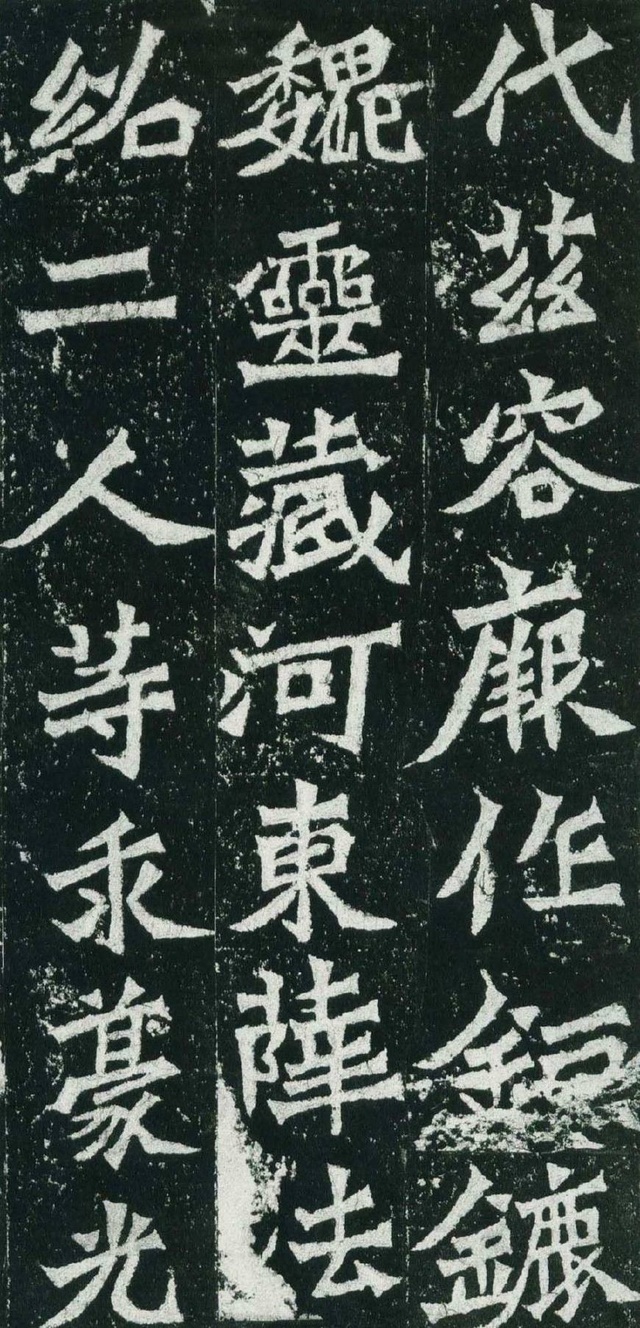 代茲容厥作鉅鏕
魏靈藏河東薛法
紹二人等求豪光